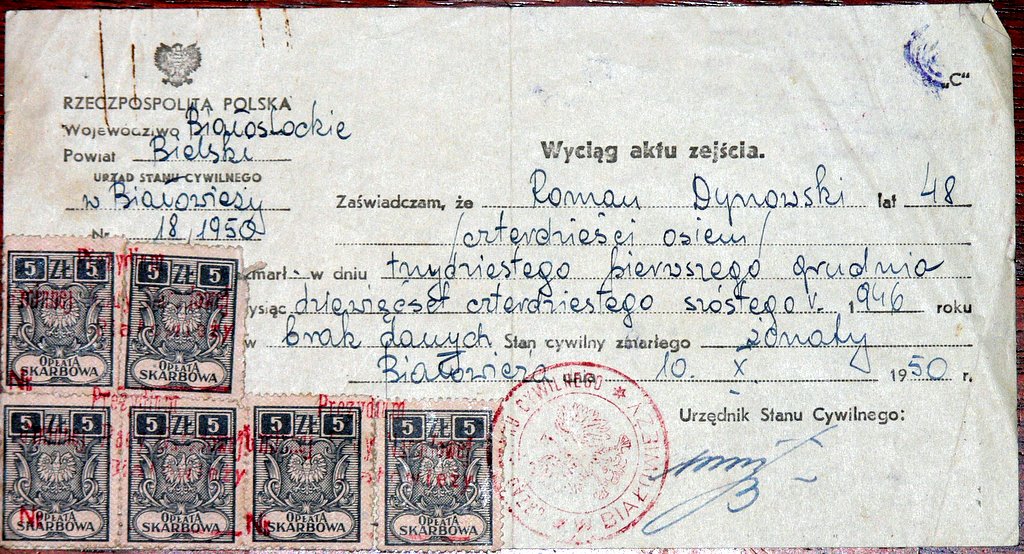 „C"
RZECZPOSPOLITA POLSKA
Województwo Białostockie
Powiat Bielski
URZĄD STANU CYWILNEGO
w Białowieży
Nr 18/1950
Wyciąg aktu zejścia.
Zaświadczam, że Roman Dynowski lat 48
/czterdzieści osiem/
zmarł w dniu trzydziestego pierwszego grudnia
ysiąc dziewięćset czterdziestego szóstego r. 1946 roku
w brak danych Stan cywilny zmarłego żonaty
Białowieża 10. X. 1950 r.
Urzędnik Stanu Cywilnego:
5 ZŁ 5
OPŁATA
SKARBOWA
5 ZŁ 5
OPŁATA
SKARBOWA
5 ZŁ 5
OPŁATA
SKARBOWA
5 ZŁ 5
OPŁATA
SKARBOWA
5 ZŁ 5
OPŁATA
SKARBOWA
5 ZŁ 5
OPŁATA
SKARBOWA
Prezydium
Prezydium
Prezydium
Nr
Nr
Nr
CYWILNEGO
W BIAŁOWIEŻY